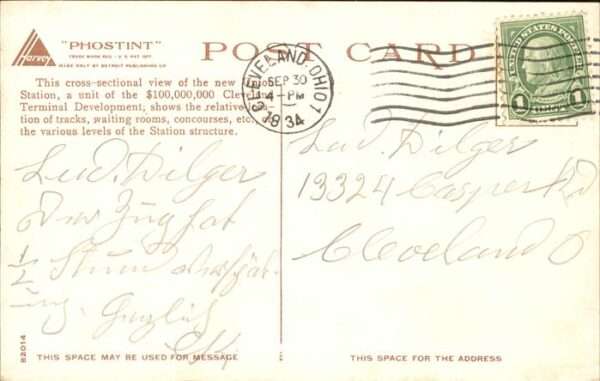 Harvey
"PHOSTINT"
TRADE MARK REG. U.S. PAT. OFF.
MADE ONLY BY DETROIT PUBLISHING CO.
POST CARD
This cross-sectional view of the new Union
Station, a unit of the $100,000,000 Cleveland
Terminal Development, shows the relative
tion of tracks, waiting rooms, concourses, etc.
the various levels of the Station structure.
CLEVELAND, OHIO 1
SEP 30
4-PM
1934
UNITED STATES POSTAGE
1 1
Lud. Dilger
Der Zug hat
1/2 Stund
Lud. Dilger
13324 Casper Rd
Cleveland O
82014
THIS SPACE MAY BE USED FOR MESSAGE
THIS SPACE FOR THE ADDRESS